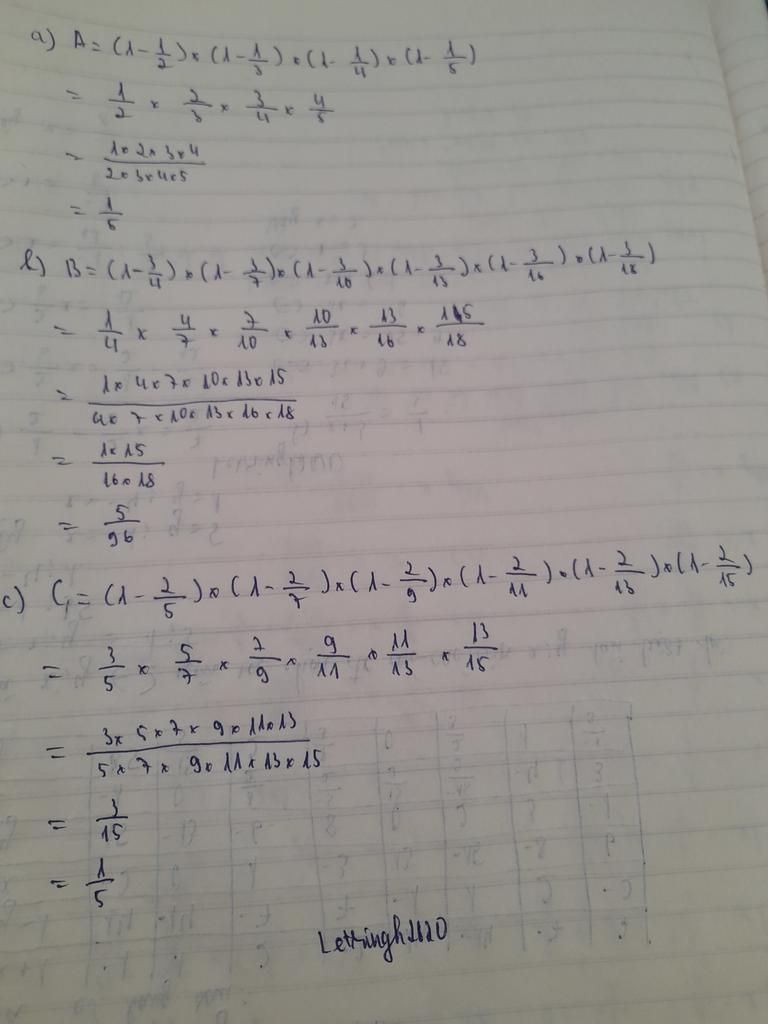 a) A = (1 - 1/2) × (1 - 1/3) × (1 - 1/4) × (1 - 1/5)
= 1/2 × 2/3 × 3/4 × 4/5
= (1×2×3×4)/(2×3×4×5)
= 1/5
b) B = (1 - 3/4) × (1 - 3/7) × (1 - 3/10) × (1 - 3/13) × (1 - 3/16) × (1 - 3/18)
= 1/4 × 4/7 × 7/10 × 10/13 × 13/16 × 15/18
= (1×4×7×10×13×15)/(4×7×10×13×16×18)
= (1×15)/(16×18)
= 5/96
c) C = (1 - 2/5) × (1 - 2/7) × (1 - 2/9) × (1 - 2/11) × (1 - 2/13) × (1 - 2/15)
= 3/5 × 5/7 × 7/9 × 9/11 × 11/13 × 13/15
= (3×5×7×9×11×13)/(5×7×9×11×13×15)
= 3/15
= 1/5